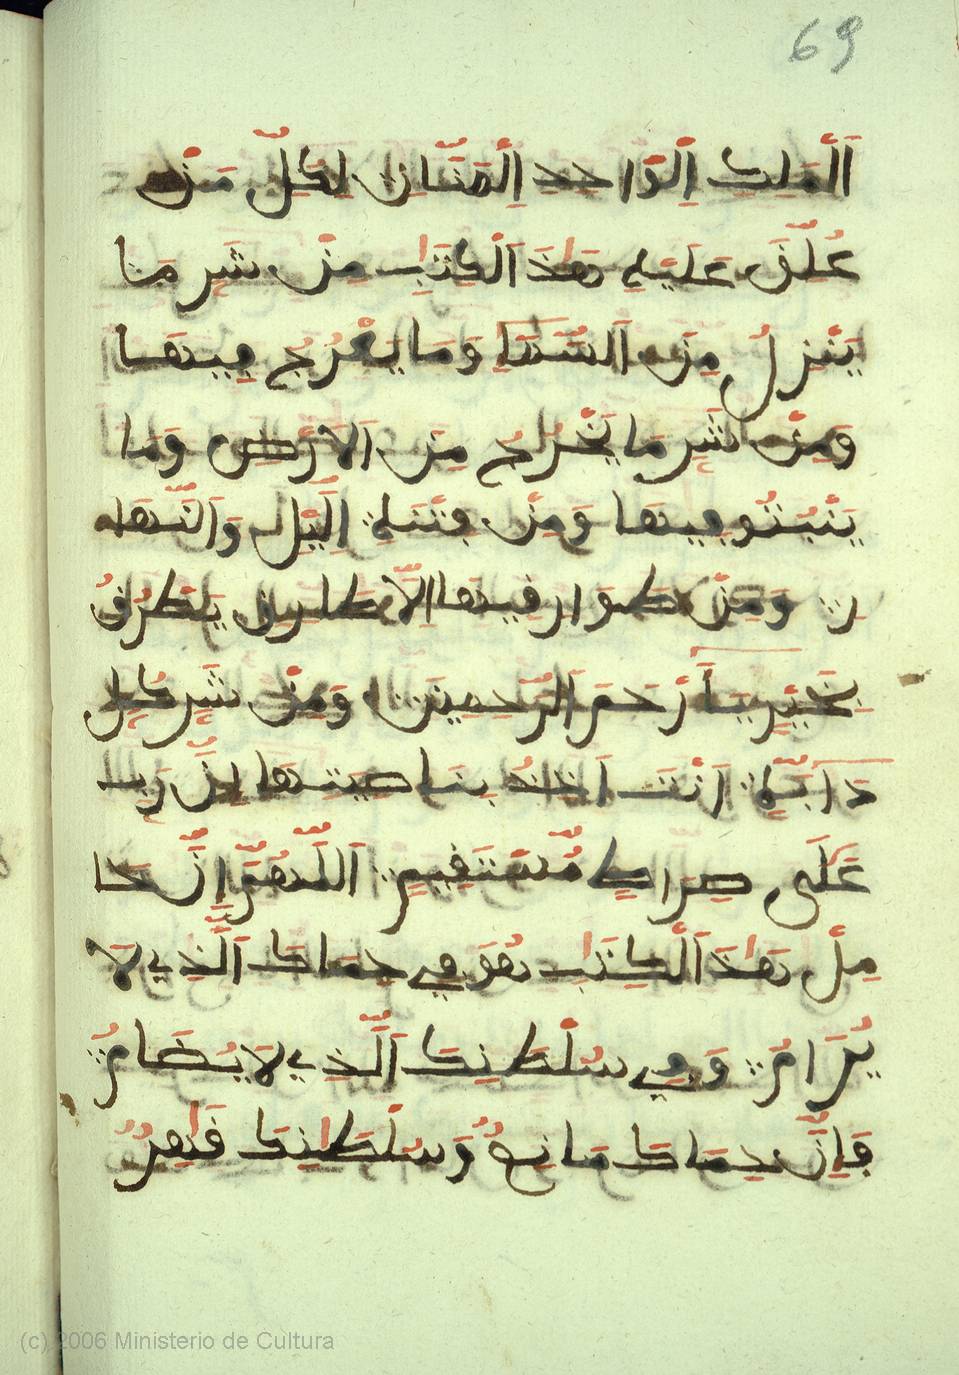 69
اَلْمَلِكِ اِلْوَاحِدِ اِلْمَنَّانِ لِكُلِّ مَنْ
عُلِّقَ عَلَيْهِ هَذَا اَلْكِتَابِ مِنْ شَرِّ مَا
يَنْزِلُ مِنَ السَّمَآءِ وَمَا يَعْرُجُ فِيهَا
وَمِنْ شَرِّ مَا يَخْرُجُ مِنَ الْأَرْضِ وَمَا
يَنْبُتُو فِيهَا وَمِنْ فِتْنَةِ الَّيْلِ وَالنَّهَا
رِ وَمِنْ طَوَارِقِهَا اِلَّا طَارِقٌ يَطْرُقُ
بِخَيْرٍ يَآ أَرْحَمَ الرَّاحِمِينَ وَمِنْ شَرِّ كُلِّ
دَآبَّةٍ اَنْتَ آخِذٌ بِنَاصِيَتِهَا إِنَّ رَبِّ
عَلَى صِرَاطٍ مُّسْتَقِيمٍ اَللَّهُمَّ إِنَّ حَا
مِلْ هَذَا اَلْكِتَابِ هُوَ فِي حِمَاكَ اَلَّذِي لَا
يُرَامُ وَفِي سُلْطَنِكَ اَلَّذِي لَا يُضَامُ
فَإِنَّ حِمَاكَ مَانِعٌ وَسُلْطَانِكَ قَاهِرٌ
(c) 2006 Ministerio de Cultura